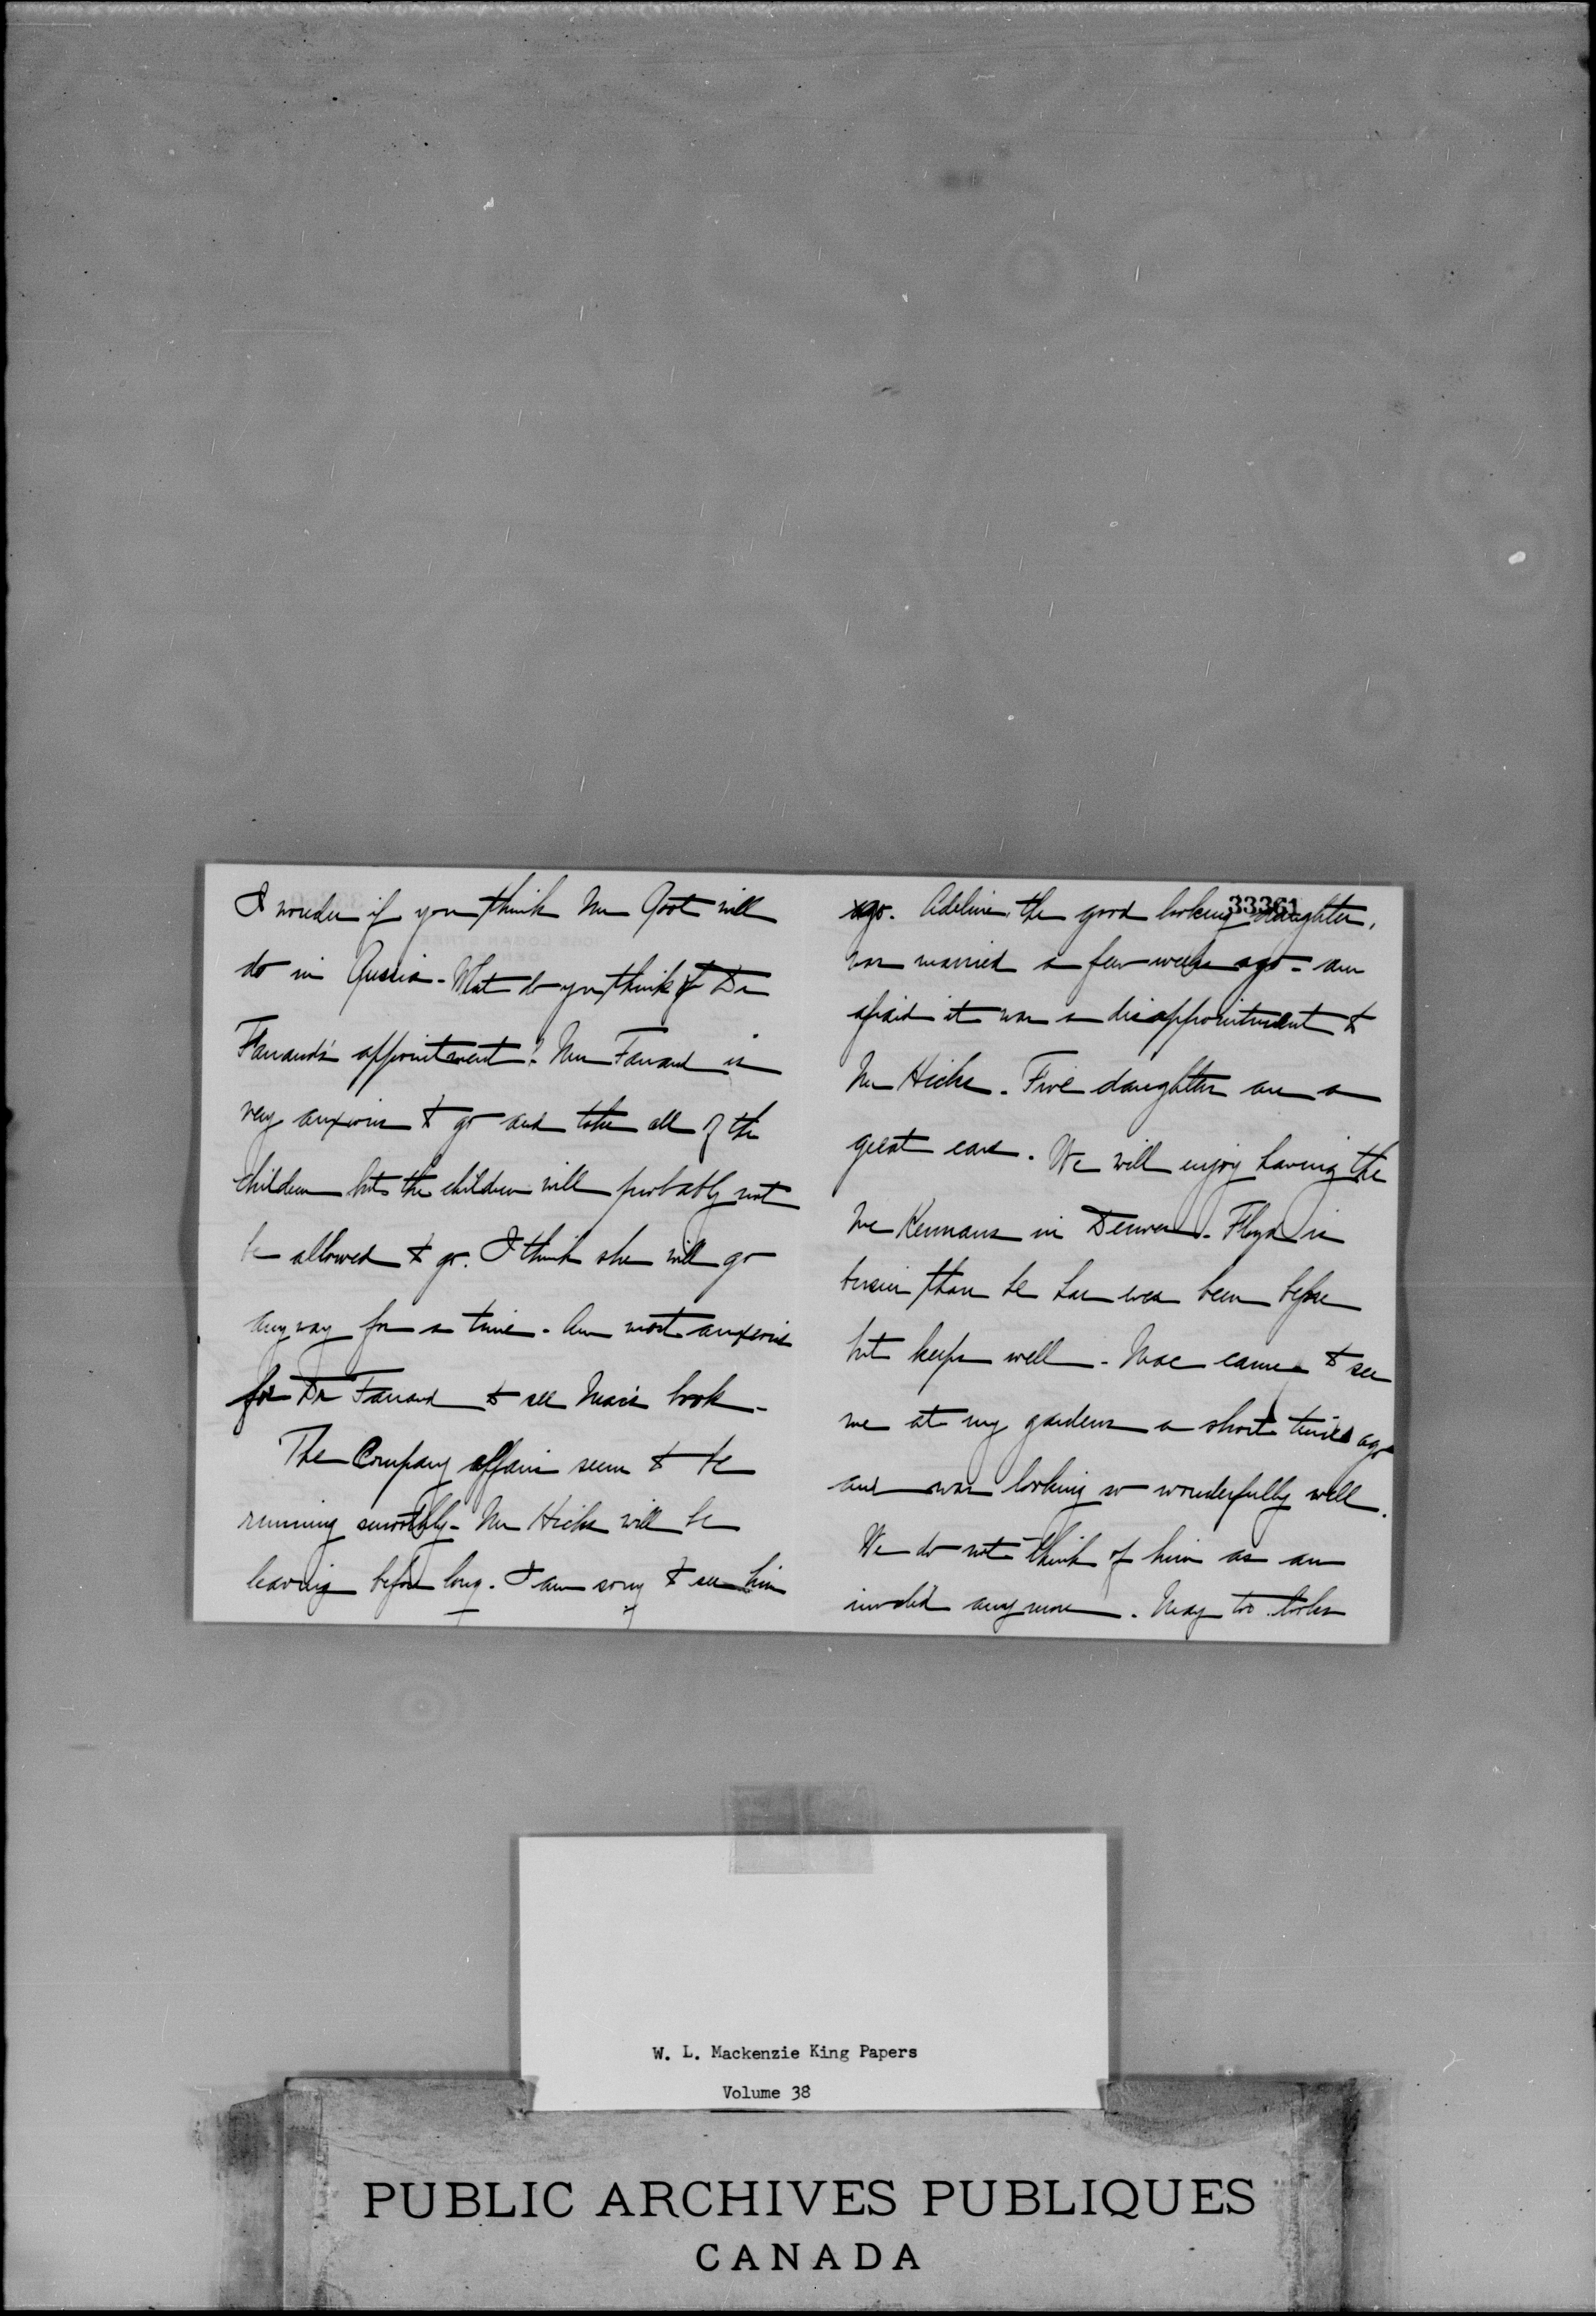 I wonder if you think Mr Root will
do in Russia - What do you think of Dr
Farrand's appointment? Mrs Farrand is
very anxious to go and take all of the
children but the children will probably not
be allowed to go. I think she will go
anyway for a time. Am most anxious
for Dr Farrand to see Mac's book -
The Company affairs seem to be
running smoothly - Mr Hicks will be
leaving before long. I am sorry to see him
go. Adeline, the good looking daughter,
was married a few weeks ago - am
afraid it was a disappointment to
Mr Hicks. Five daughters are a
great care. We will enjoy having the
McKennans in Denver. Floyd is
busier than he has ever been before
but keeps well - Mac came to see
me at my gardens a short time ago
and was looking so wonderfully well.
We do not think of him as an
invalid any more. May too looks
33361
W. L. Mackenzie King Papers
Volume 38
PUBLIC ARCHIVES PUBLIQUES
CANADA